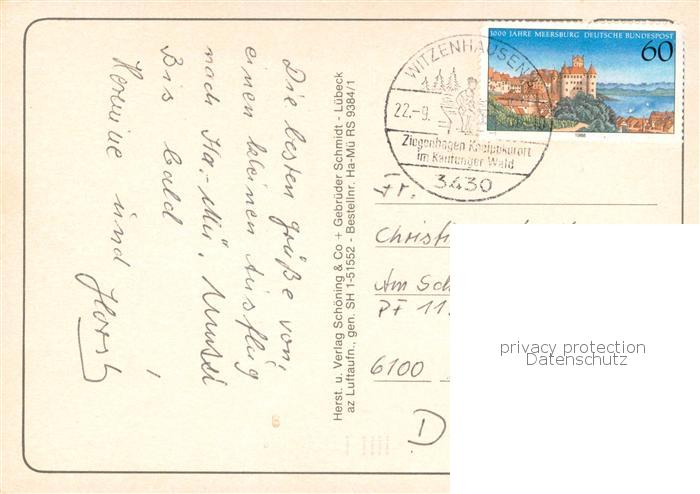 Die besten Grüße von
einen kleinen Ausflug
nach Ha-Mü, Mursci
Bis bald !
Hermine und Horst
Herst. u. Verlag Schöning & Co + Gebrüder Schmidt - Lübeck
az Luftaufn., gen. SH 1-51552 - Bestellnr. Ha-Mü RS 9384/1
WITZENHAUSEN
22.-9.
Ziegenhagen Kneippkurort
im Kaufunger Wald
3430
1000 JAHRE MEERSBURG DEUTSCHE BUNDESPOST
60
1988
Fr.
Christi
Am Sch
PF 11
6100
D
privacy protection
Datenschutz